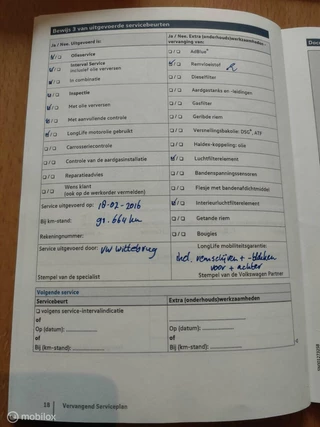 Bewijs 3 van uitgevoerde servicebeurten
Ja / Nee: Uitgevoerd is:
Olieservice
Interval Service
inclusief olie verversen
in combinatie
Inspectie
Met olie verversen
Met aanvullende controle
LongLife motorolie gebruikt
Carrosseriecontrole
Controle van de aardgasinstallatie
Reparatieadvies
Wens klant
(ook op de werkorder vermelden)
Service uitgevoerd op: 18-02-2016
Bij km-stand: 91.664 km
Rekeningnummer:
Service uitgevoerd door: VW Wittebrug
Stempel van de specialist
Ja / Nee: Extra (onderhouds)werkzaamheden
vervanging van:
AdBlue®
Remvloeistof
Dieselfilter
Aardgastanks en -leidingen
Gasfilter
Geribde riem
Versnellingsbakolie: DSG®, ATF
Haldex-koppeling: olie
Luchtfilterelement
Bandenspanningsensoren
Flesje met bandenafdichtmiddel
Interieurluchtfilterelement
Getande riem
Bougies
LongLife mobiliteitsgarantie:
incl. remschijven + -blokken
voor + achter
Stempel van de Volkswagen Partner
Volgende service
Servicebeurt
volgens service-intervalindicatie
of
Op (datum):
of
Bij (km-stand):
Extra (onderhouds)werkzaamheden
of
Op (datum):
of
Bij (km-stand):
18 Vervangend Serviceplan
Doc
mobilox